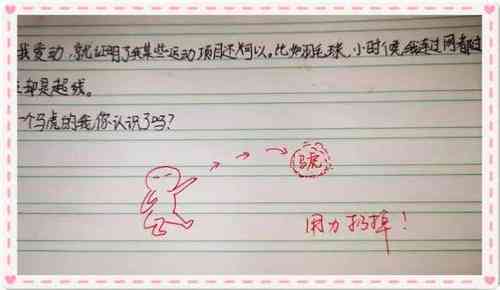 我爱动，就证明了我某些运动项目还可以。比如羽毛球，小时候我连过网都过
却是起线。
一个马虎的我你认识了吗？
马虎
用力扔掉！